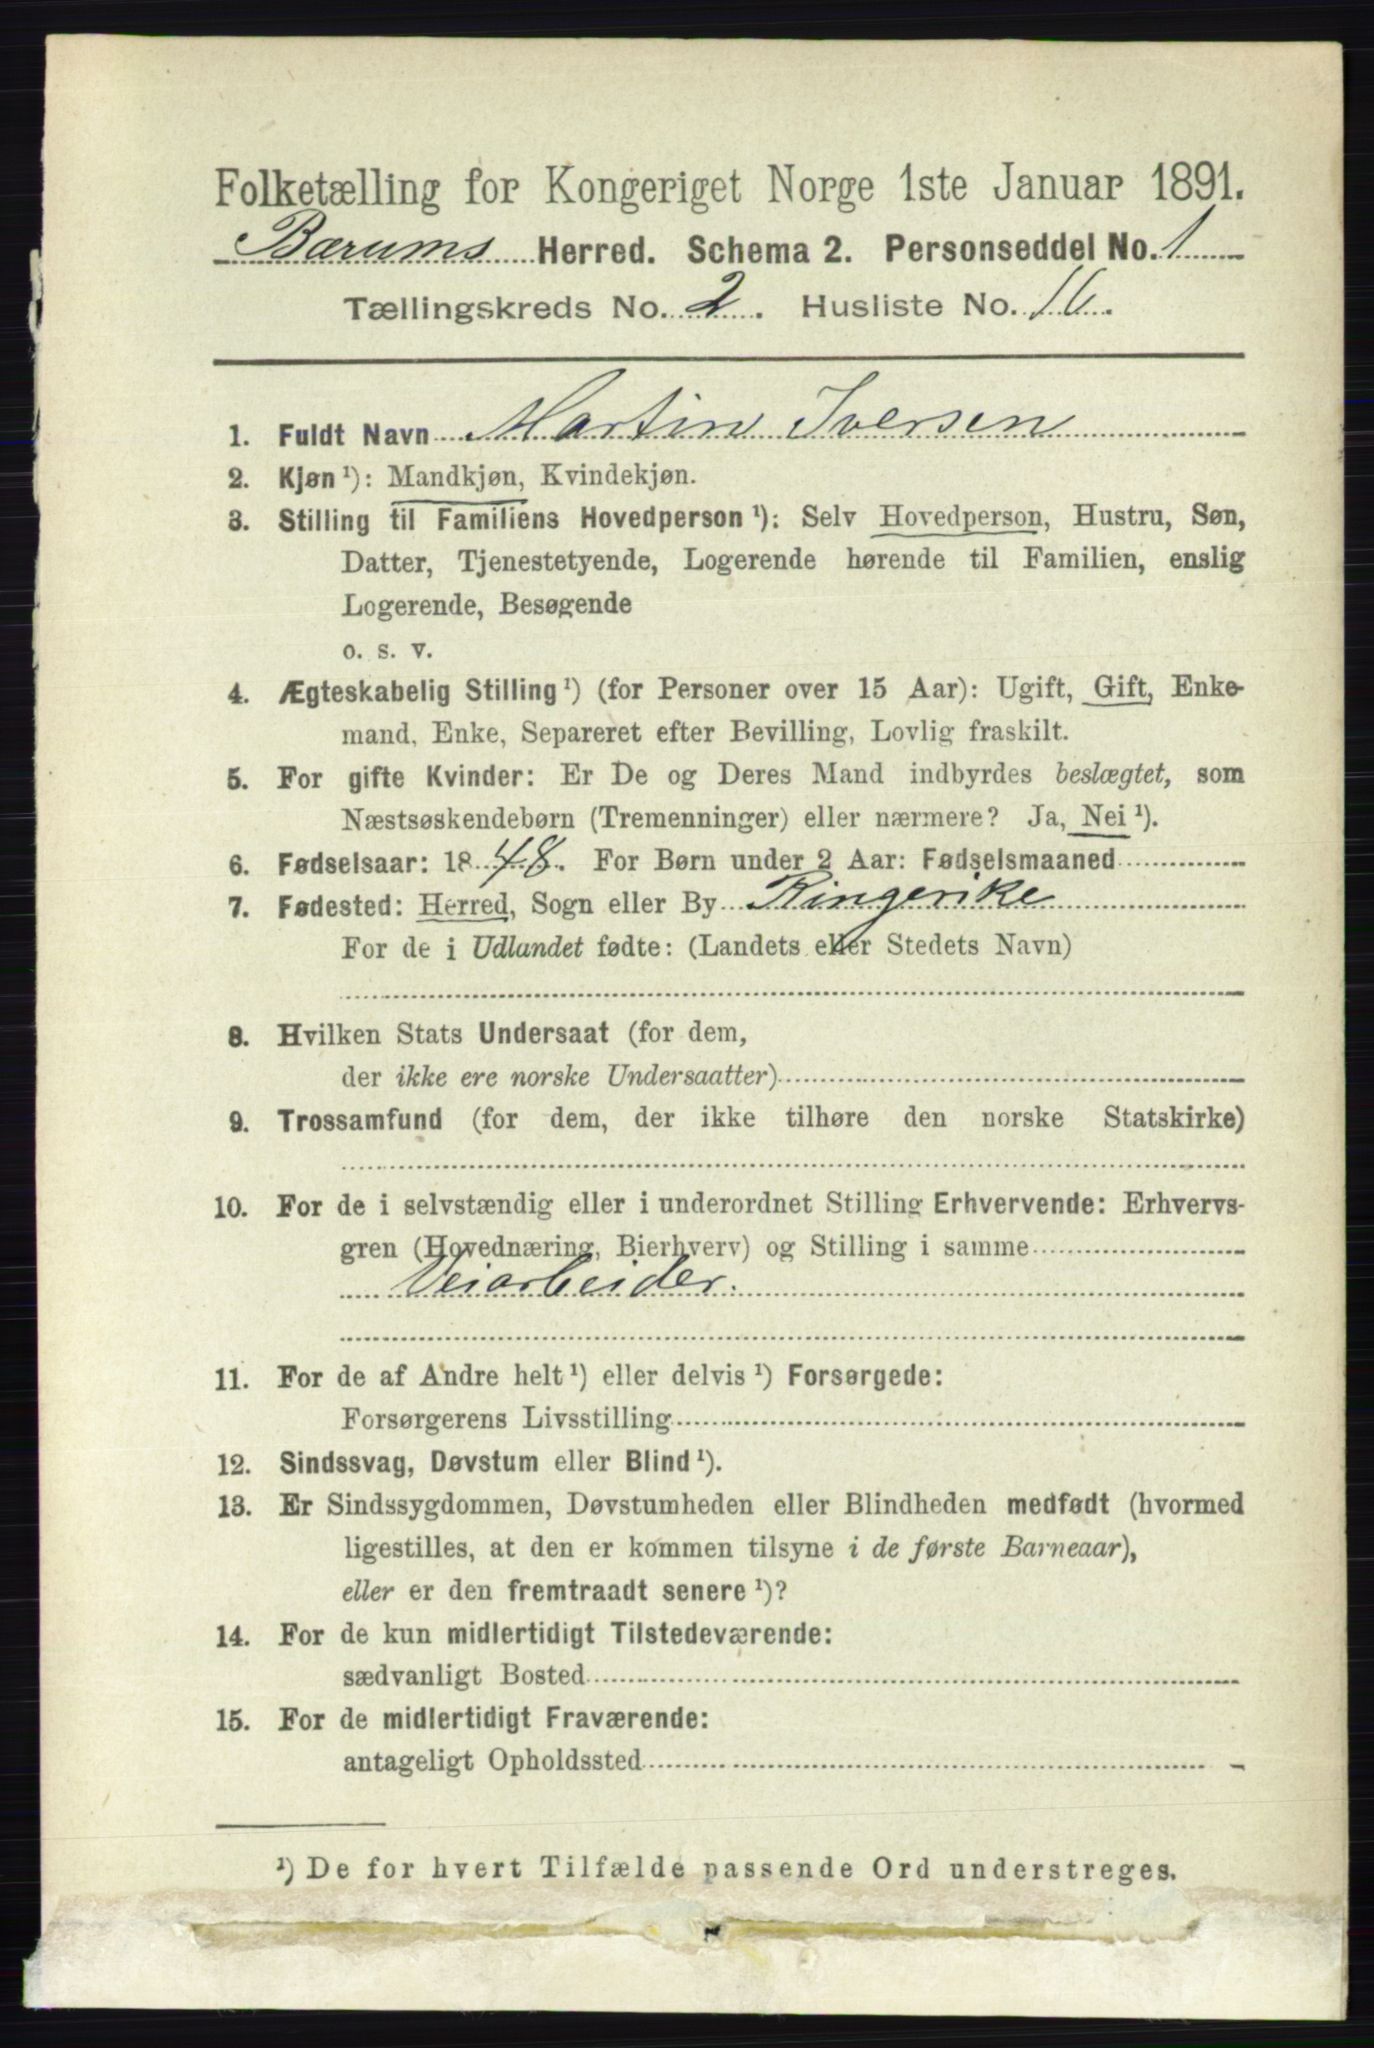 Folketælling for Kongeriget Norge 1ste Januar 1891.
Bærums Herred. Schema 2. Personseddel No. 1
Tællingskreds No. 2. Husliste No. 16.
1. Fuldt Navn Martin Iversen
2. Kjøn ¹): Mandkjøn, Kvindekjøn.
3. Stilling til Familiens Hovedperson ¹): Selv Hovedperson, Hustru, Søn,
Datter, Tjenestetyende, Logerende hørende til Familien, enslig
Logerende, Besøgende
o. s. v.
4. Ægteskabelig Stilling ¹) (for Personer over 15 Aar): Ugift, Gift, Enke-
mand, Enke, Separeret efter Bevilling, Lovlig fraskilt.
5. For gifte Kvinder: Er De og Deres Mand indbyrdes beslægtet, som
Næstsøskendebørn (Tremenninger) eller nærmere? Ja, Nei ¹).
6. Fødselsaar: 1848. For Børn under 2 Aar: Fødselsmaaned
7. Fødested: Herred, Sogn eller By Ringerike
For de i Udlandet fødte: (Landets eller Stedets Navn)
8. Hvilken Stats Undersaat (for dem,
der ikke ere norske Undersaatter)
9. Trossamfund (for dem, der ikke tilhøre den norske Statskirke)
10. For de i selvstændig eller i underordnet Stilling Erhvervende: Erhvervs-
gren (Hovednæring, Bierhverv) og Stilling i samme
Veiarbeider.
11. For de af Andre helt ¹) eller delvis ¹) Forsørgede:
Forsørgerens Livsstilling
12. Sindssvag, Døvstum eller Blind ¹).
13. Er Sindssygdommen, Døvstumheden eller Blindheden medfødt (hvormed
ligestilles, at den er kommen tilsyne i de første Barneaar),
eller er den fremtraadt senere ¹)?
14. For de kun midlertidigt Tilstedeværende:
sædvanligt Bosted
15. For de midlertidigt Fraværende:
antageligt Opholdssted
¹) De for hvert Tilfælde passende Ord understreges.